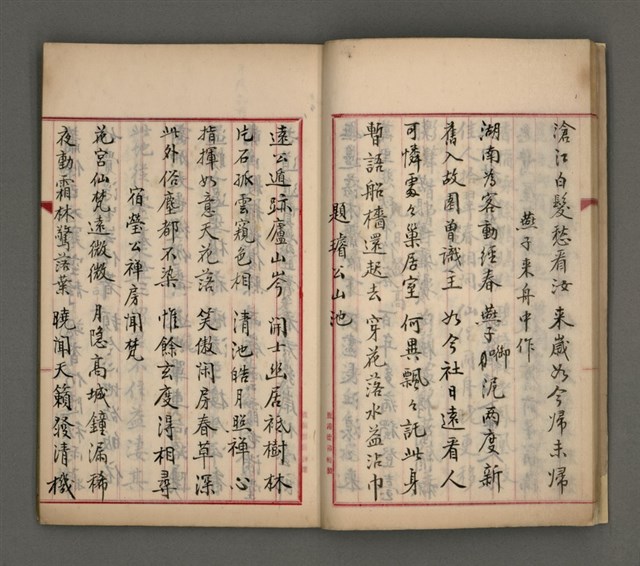 滄江白髮愁看汝 来歲如今歸未歸
燕子来舟中作
湖南為客動經春 燕子啣泥兩度新
舊入故園曾識主 如今社日遠看人
可憐處々巢居室 何異飄々託此身
暫語船檣還起去 穿花落水益沾巾
題璿公山池
遠公遁跡廬山岑 開士幽居祗樹林
片石孤雲窺色相 清池皓月照禪心
指揮如意天花落 笑傲閑房春草深
此外俗塵都不染 惟餘玄度得相尋
宿瑩公禪房聞梵
花宮仙梵遠微微 月隐髙城鐘漏稀
夜動霜林驚落葉 曉聞天籟發清機